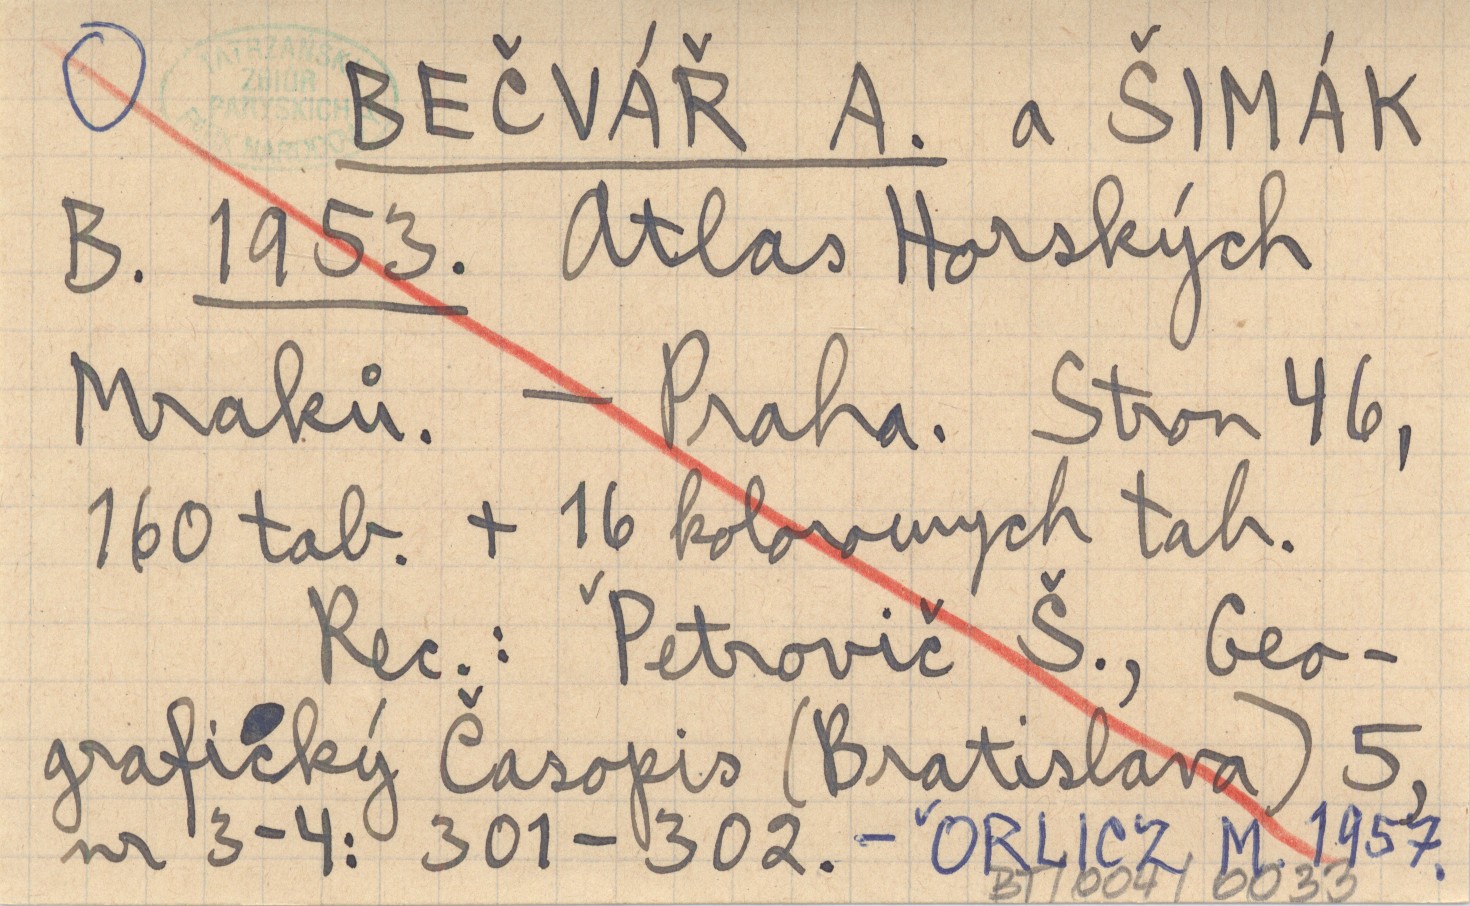 TATRZAŃSKI
ZBIÓR
PARYSKICH
BEČVÁŘ A. a ŠIMÁK
B. 1953. Atlas Horských
Mraků. — Praha. Stron 46,
160 tab. + 16 kolorowych tab.
Rec.: ˇPetrovič Š., Geo-
grafický Časopis (Bratislava) 5,
nr 3-4: 301-302. - ˇORLICZ M. 1957.
BT/004/0033